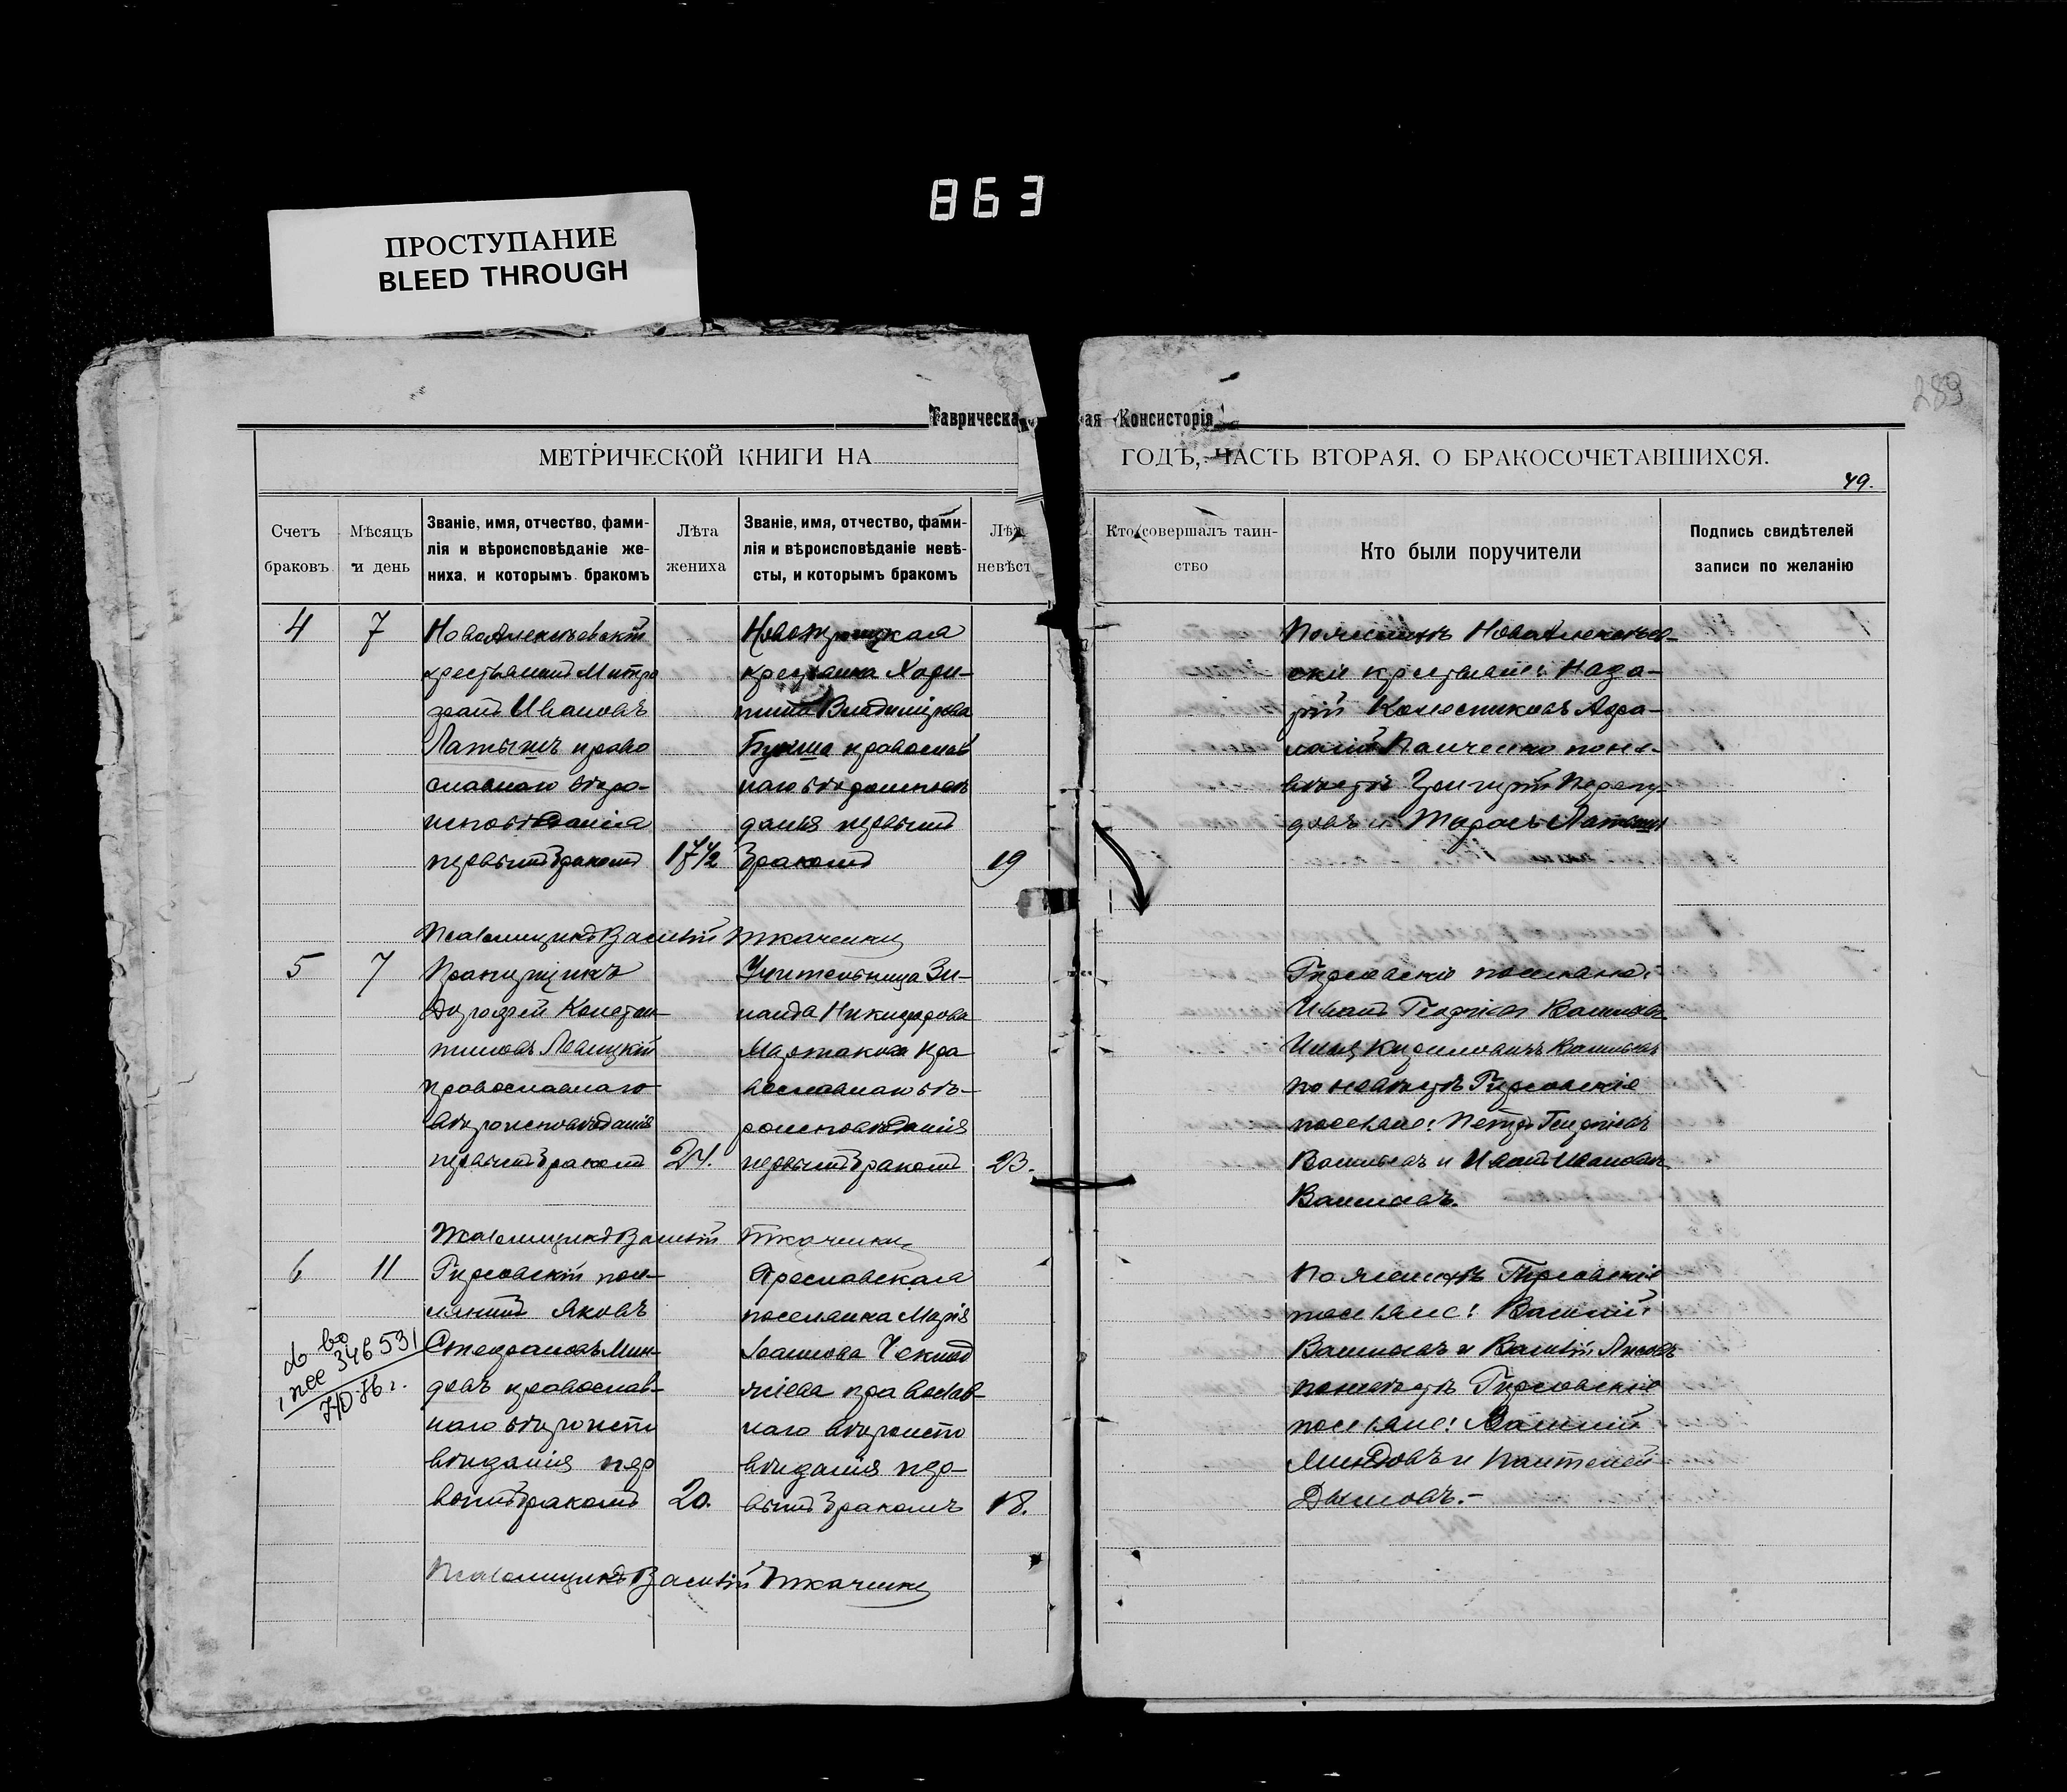 863
ПРОСТУПАНИЕ
BLEED THROUGH
289
Таврическа
ая Консисторія
МЕТРИЧЕСКОЙ КНИГИ НА
ГОДЪ, ЧАСТЬ ВТОРАЯ. О БРАКОСОЧЕТАВШИХСЯ.
49.
Счетъ браковъ
Мѣсяцъ и день
Званіе, имя, отчество, фами-
лія и вѣроисповѣданіе же-
ниха, и которымъ бракомъ
Лѣта жениха
Званіе, имя, отчество, фами-
лія и вѣроисповѣданіе невѣ-
сты, и которымъ бракомъ
Лѣт
невѣст
Кто совершалъ таин-
ство
Кто были поручители
Подпись свидѣтелей
записи по желанію
4
7
НовоАлексѣевскій
крестьянинъ Митро
фанъ Ивановъ
Латышъ право
славнаго вѣро-
исповѣданія
первымъ бракомъ
17 1/2
Новотроицкая
крестьянка Хари-
тина Владимірова
православ
наго вѣроисповѣ
данія первымъ
бракомъ
19
По женихѣ НовоАлексѣев-
скіе крестьяне: Наза-
рій Колесниковъ Афа-
насій Панченко по не-
вѣстѣ Григорій
и Тарасъ Латышъ
Псаломщикъ Василій Ткаченко
5
7
Прапорщикъ
Дорофей Констан-
тиновъ Левицкій
православнаго
вѣроисповѣданія
первымъ бракомъ
24.
Учительница Зи-
наида Никифорова
Мартакова пра
вославнаго вѣ-
роисповѣданія
первымъ бракомъ
23.
Гирсовскіе поселяне:
Иванъ Георгіевъ Васильевъ
Илья Кирилловичъ Васильевъ
по невѣстѣ Гирсовскіе
поселяне: Петръ Георгіевъ
Васильевъ и Иванъ Ивановъ
Васильевъ.
Псаломщикъ Василій Ткаченко
6
11
Гирсовскій посе-
лянинъ Яковъ
Стефановъ Мин-
довъ православ-
наго вѣроиспо
вѣданія пер
вымъ бракомъ
20.
поселянка Марія
Іоаннова
православ-
наго вѣроиспо
вѣданія пер-
вымъ бракомъ
18.
По женихѣ Гирсовскіе
поселяне: Василій
Васильевъ и Василій
по невѣстѣ Гирсовскіе
поселяне: Василій
Миндовъ и Пантелей
Дымовъ.-
346531
Псаломщикъ Василій Ткаченко